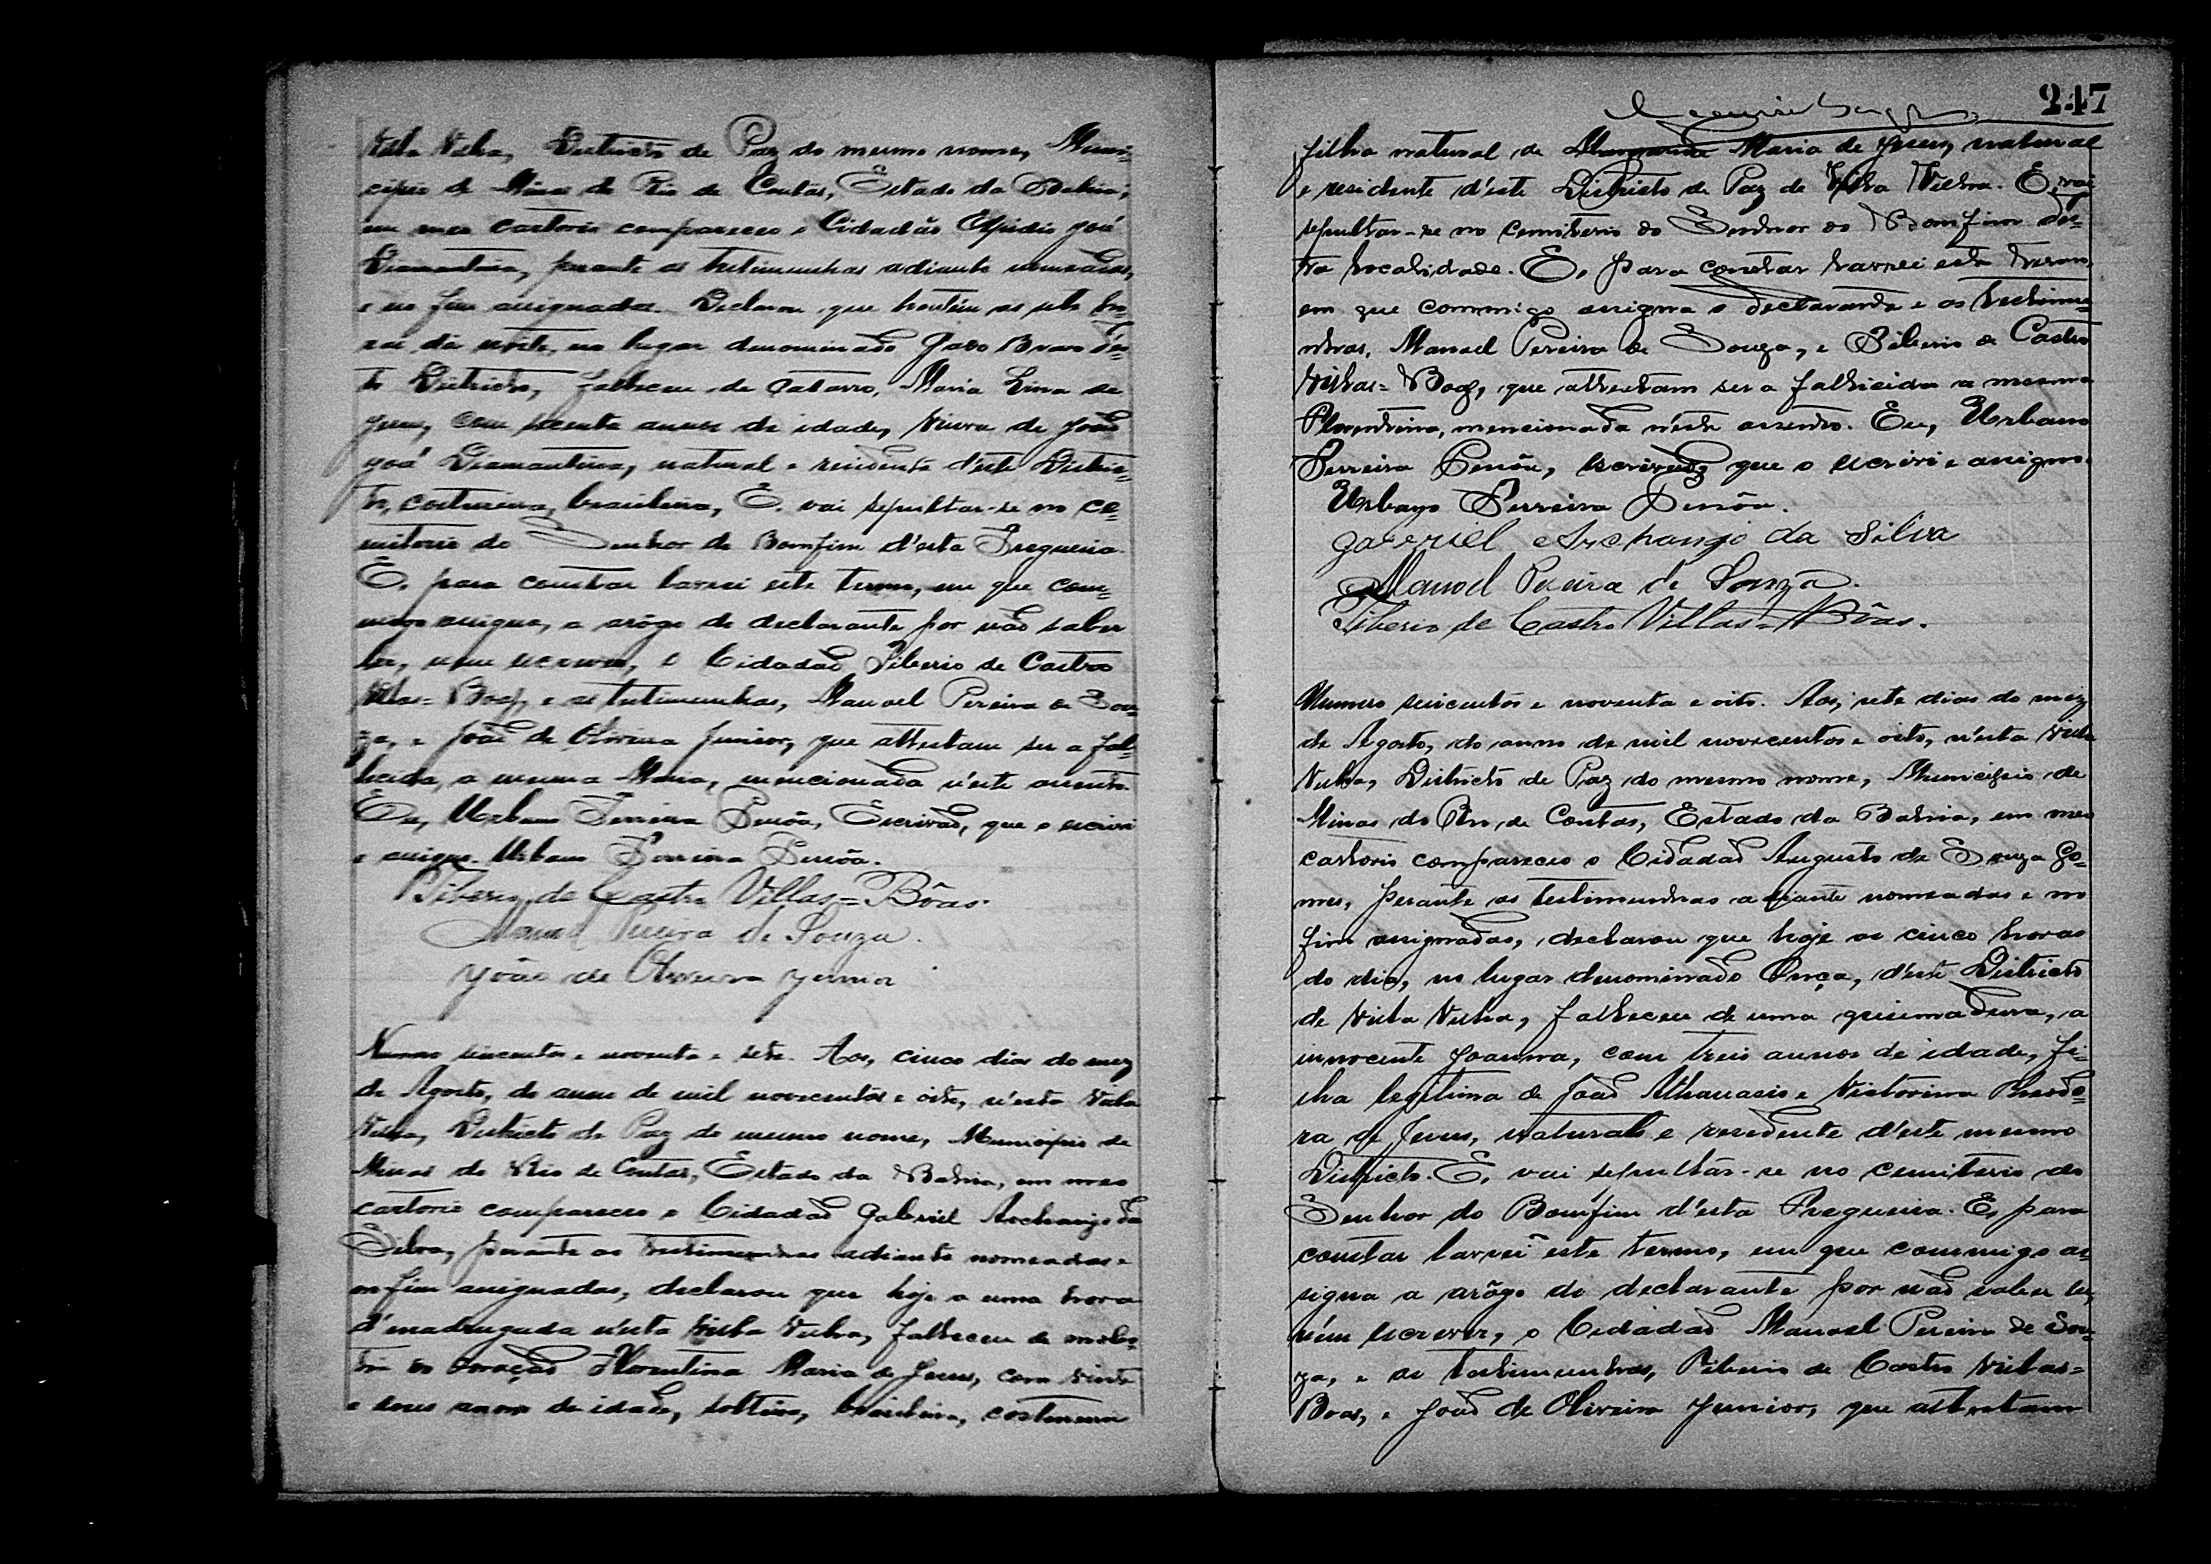 Villa Velha, Districto de Paz do mesmo nome, Muni-
cipio de Minas do Rio de Contas, Estado da Bahia,
em meo cartorio compareceo o Cidadão Elpidio Goá
Diamantino, perante as testimunhas adiante nomeadas,
e no fim assignadas. Declarou que hontem as sete ho-
ras da noite, no lugar denominado Gado Bravo d'es-
te Districto, falleceu de Catarro, Maria Lina de
Jesus, com secenta annos de idade, viuva de João
Goá Diamantino, natural e residente d'este Distric-
to, costureira, brasileira, E, vai sepultar-se no ce-
miterio do Senhor do Bomfim d'esta Freguesia.
E, para constar lavrei este termo, em que com-
migo assigna, a arôgo do declarante por não saber
ler, nem escrever, o Cidadão Tiberio de Castro
Villas=Boas, e as testimunhas, Manoel Pereira de Sou-
za, e João de Oliveira Junior, que attestam ser a fal-
lecida, a mesma Maria, mencionada n'este assento.
Eu, Urbano Ferreira Lensôa, Escrivão, que o escrivi
e assigno. Urbano Ferreira Lensôa.
Tiberio de Castro Villas=Bôas.
Manoel Pereira de Souza.
João de Oliveira Junior
Numero seiscentos e noventa e sete. Aos, cinco dias do mez
de Agosto, do anno de mil novecentos e oito, n'esta Villa
Velha, Districto de Paz do mesmo nome, Municipio de
Minas do Rio de Contas, Estado da Bahia, em meo
cartorio compareceo o Cidadão Gabriel Archanjo da
Silva, perante as testimunhas adiante nomeadas e
no fim assignadas, declarou que hoje a uma hora
d'madrugada n'esta Villa Velha, falleceu de moles-
tia do coração Florentina Maria de Jesus, com vinte
e annos de idade, solteira, brasileira, costureira
247
filha natural de Maria de Jesus, natural
e residente d'este Districto de Paz de Villa Velha. E, vai
sepultar-se no cemiterio do Senhor do Bomfim des-
ta localidade. E, para constar lavrei este termo,
em que commigo assigna o declarante e as testimu-
nhas, Manoel Pereira de Souza, e Tiberio de Castro
Villas=Boas, que attestam ser a fallecida a mesma
Florentina, mencionada n'este assento. Eu, Urbano
Ferreira Lensôa, escrivão, que o escrivi e assigno.
Urbano Ferreira Lensôa.
Gabriel Archanjo da Silva
Manoel Pereira de Souza.
Tiberio de Castro Villas=Bôas.
Numero seiscentos e noventa e oito. Aos, sete dias do mez
de Agosto, do anno de mil novecentos e oito, n'esta Villa
Velha, Districto de Paz do mesmo nome, Municipio de
Minas do Rio de Contas, Estado da Bahia, em meo
cartorio compareceo o Cidadão Augusto de Souza Go-
mes, perante as testimunhas adiante nomeadas e no
fim assignadas, declarou que hoje as cinco horas
do dia, no lugar denominado Onça, d'este Districto
de Villa Velha, falleceu de uma queimadura, a
innocente Joanna, com treis annos de idade, fi-
lha legitima de João Athanasio e Victorina Theodo-
ra de Jesus, natural e residente d'este mesmo
Districto. E, vai sepultar-se no cemiterio do
Senhor do Bomfim d'esta Freguesia. E, para
constar lavrei este termo, em que commigo as-
signa a arôgo do declarante por não saber ler,
nem escrever, o Cidadão Manoel Pereira de Sou-
za, e as testimunhas, Tiberio de Castro Villas=
Boas, e João de Oliveira Junior, que attestam